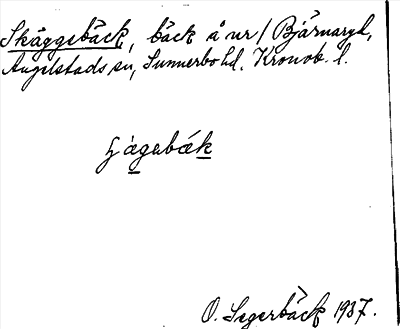 Skäggebäck, bäck å ur / Bjärnaryd,
Angelstads sn, Sunnerbo hd. Kronob. l.
O. Segerbäck 1937.